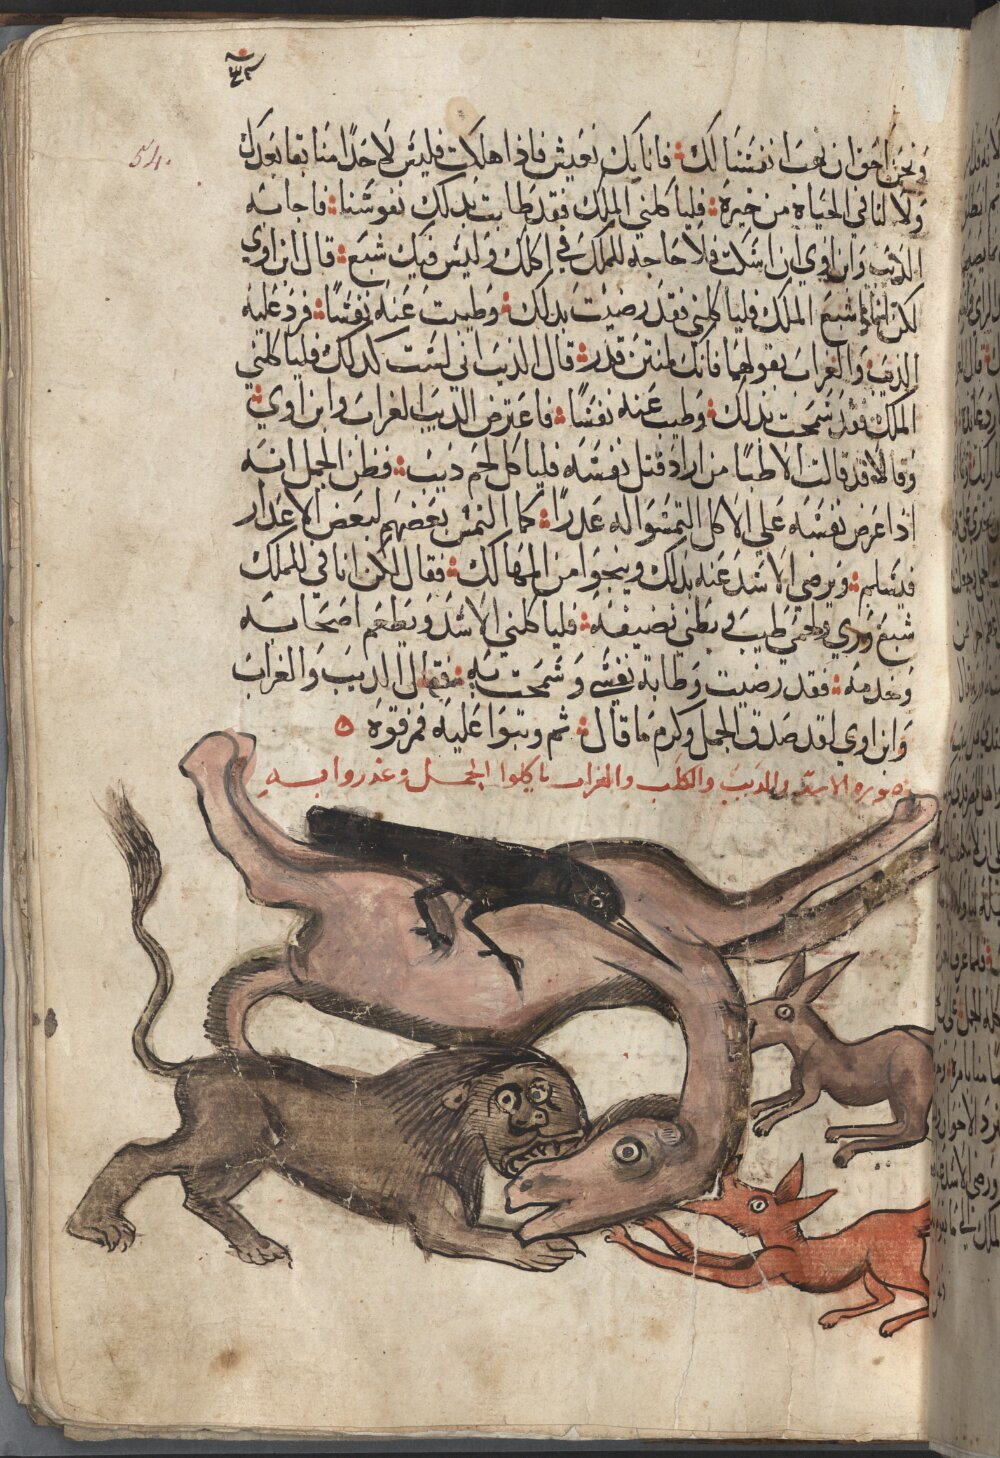 54.
ونحن احق ان نهب انفسنا لك فاننا بك نعيش فاذا هلكت فليس لاحدا منا بقا بعدك
ولا لنا في الحياة من خيرة فلياكلني الملك فقد طابت بدلك نفوسنا فاجابه
الديب وابن اوي ان اسكت فلا حاجة للملك في اكلك وليس فيك شبع قال ابن اوي
لكن انا شبع الملك فلياكلني فقد رضيت بدلك وطيبت عنه نفسا فرد عليه
الديب والغراب بقولهما فانك منتن قدر قال الديب اني لست كدلك فلياكلني
الملك فقد سمحت بدلك وطبت عنه نفسا فاعترض الديب الغراب وابن اوي
وقالا قد قالت الاطبا من اراد قتل نفسه فلياكل لحم ديب فظن الجمل انه
ادا عرض نفسه علي الاكل التمسوا له عدرا كما التمس بعضهم لبعض الاعدار
فيسلم ويرضي الاسد عنه بدلك وينجوا من المهالك فقال لكن انا في للملك
شبع وري ولحمي طيب وبطني نضيفه فلياكلني الاسد ويطعم اصحابه
وخدمه فقد رضيت وطابة نفسي وسمحت به فقال الديب والغراب
وابن اوي لقد صدق الجمل وكرم ما قال ثم وتبوا عليه فمزقوه ه
صورة الاسد والديب والكلب والغراب ياكلوا الجمل وغدروا به